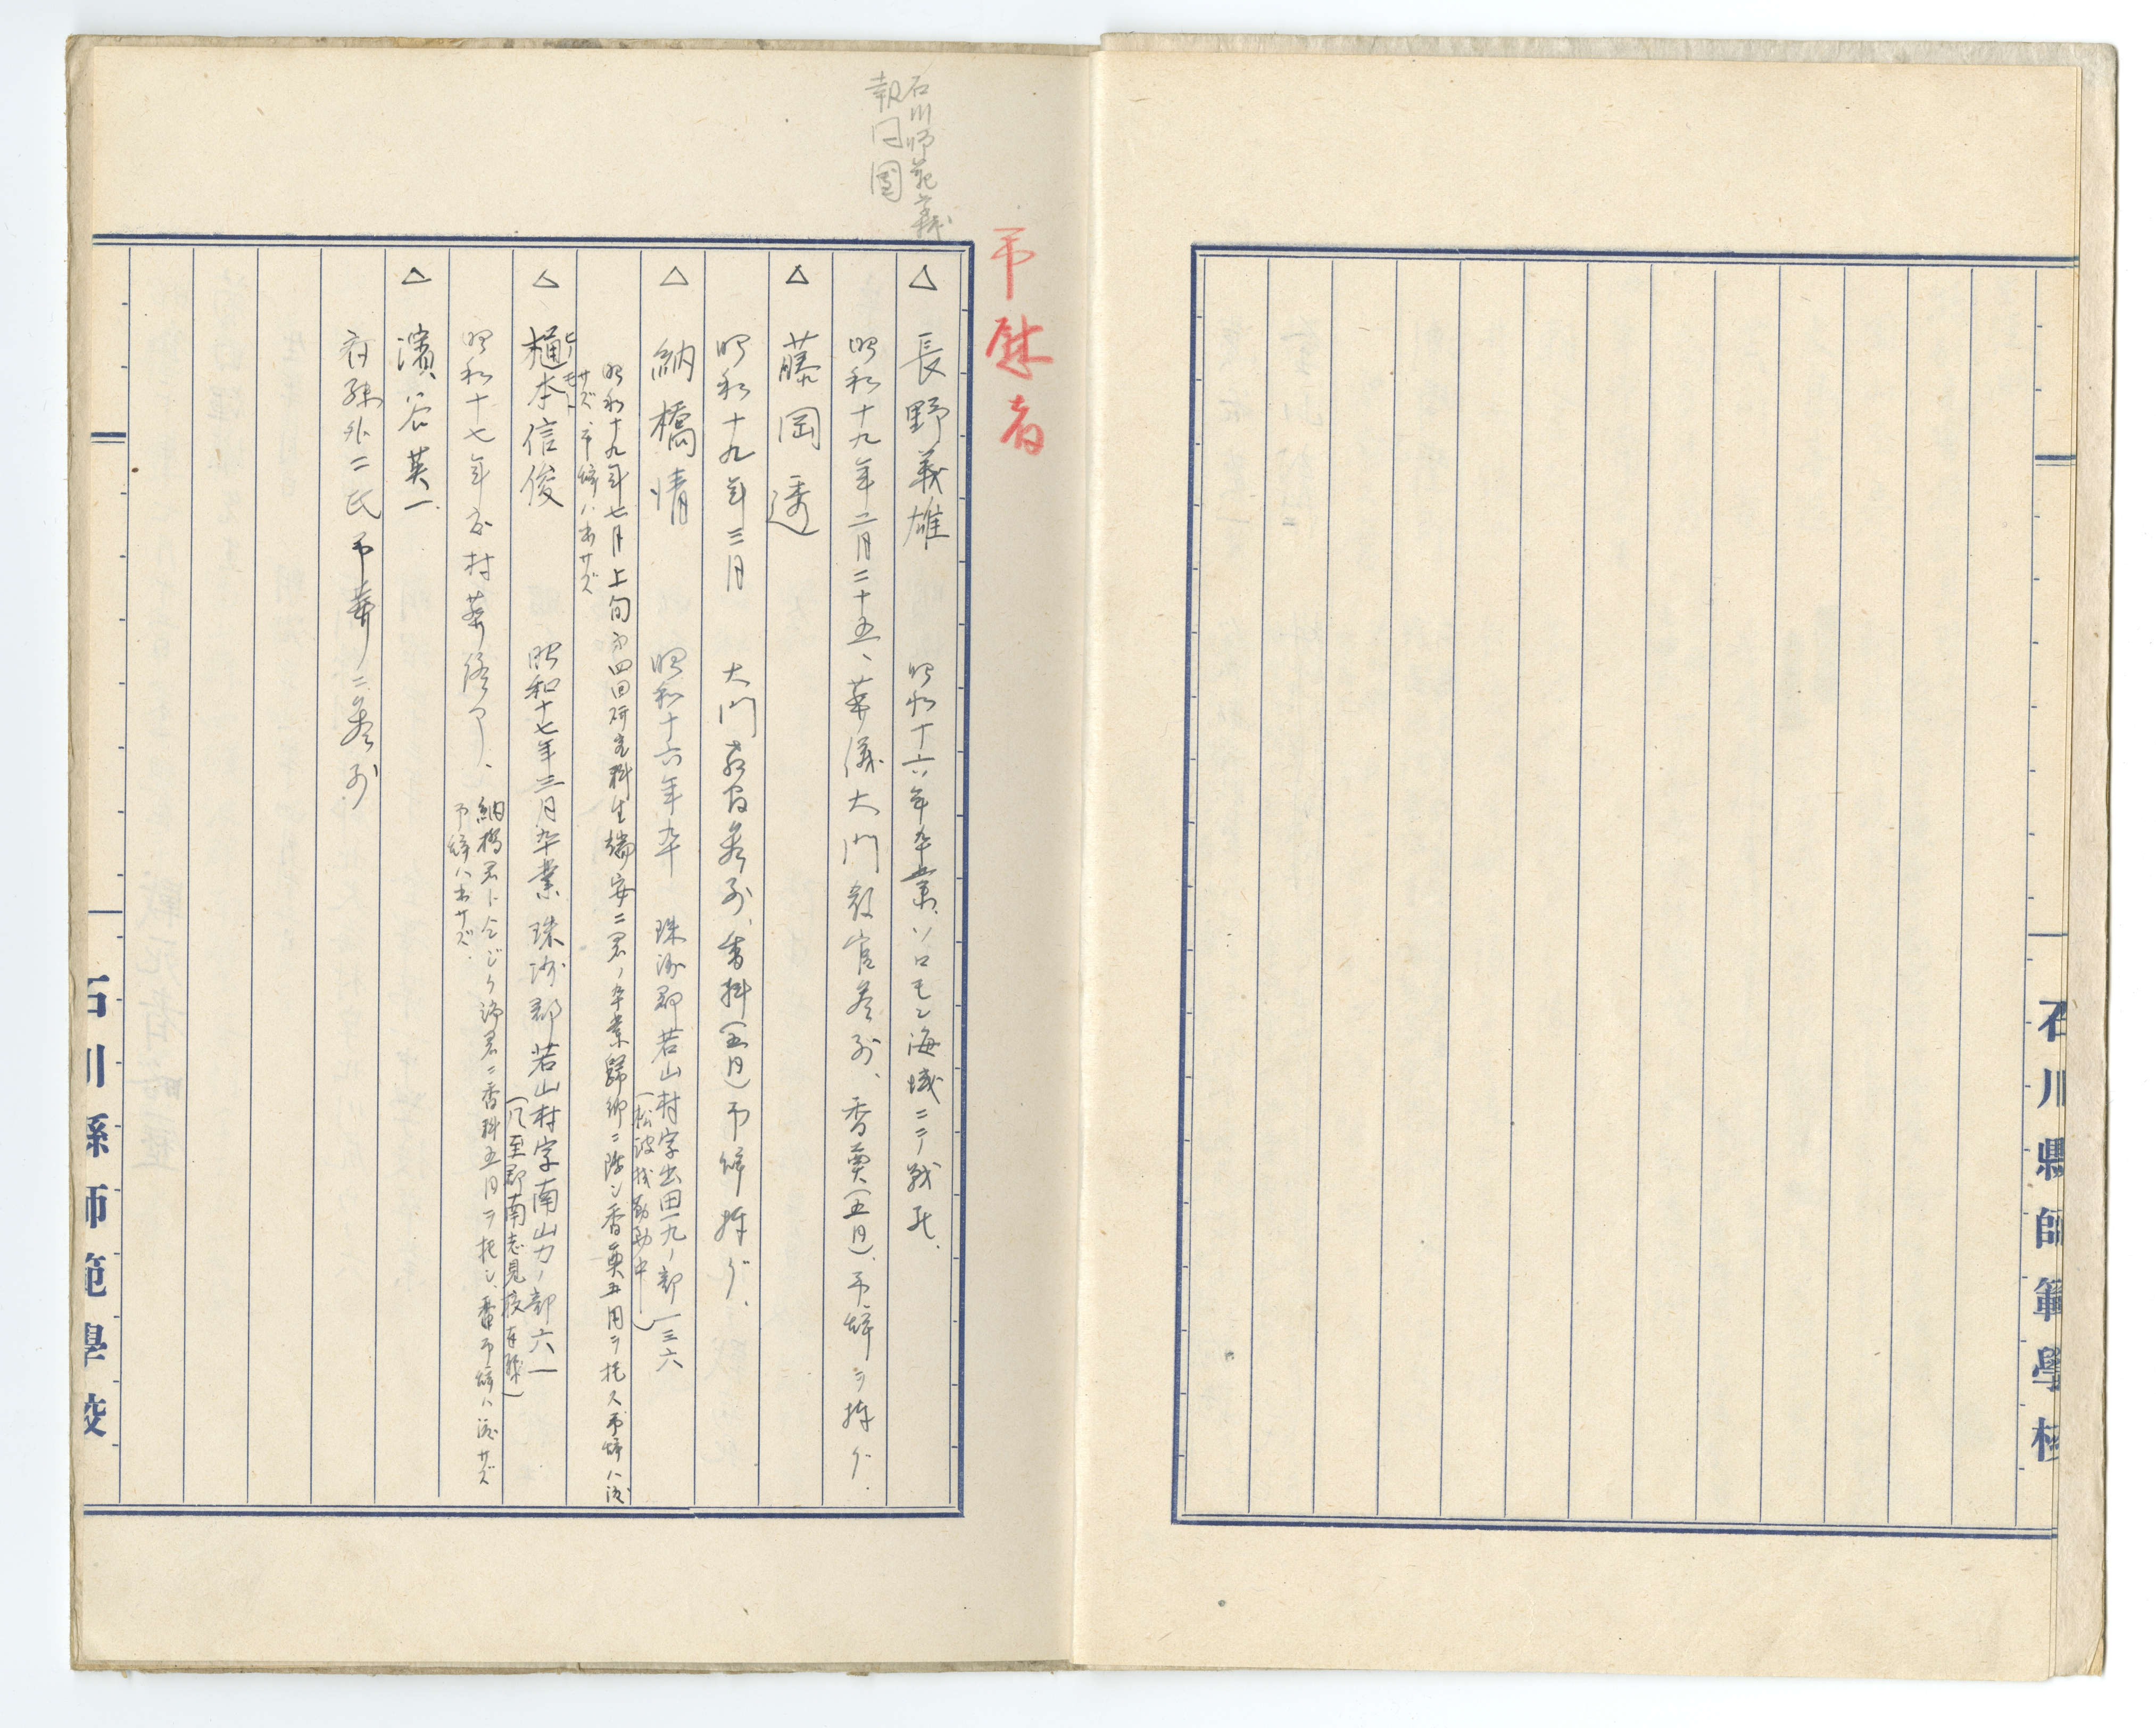 石川縣師範學校
弔慰者
石川師範義
報国團
△ 長野義雄 昭和十六年卒業、ソロモン海域ニテ戦死、
昭和十九年二月二十五、葬儀大門教官参列、香奠(五円)、弔辞ヲ捧グ.
△ 藤岡透
昭和十九年三月 大門教官参列、香料(五円)弔辞捧グ.
△ 納橋情 昭和十六年卒 珠洲郡若山村字出田一九ノ部一三六
(松波校勤務中)
昭和十九年七月上旬 第四回研究科生端安二君ノ卒業歸郷ニ際シ香奠五円ヲ托ス弔辞ハ渡
サズ、弔辞ハ出サズ
△ 樋本信俊 昭和十七年三月卒業 珠洲郡若山村字南山力ノ部六一
ヒノモト
(鳳至郡南志見校在職)
昭和十七年 村葬終了、
納橋君ト仝ジク端君ニ香料五円ヲ托シ、弔辞ハ渡サズ
弔辞ハ出サズ.
△ 濱谷英一
外二氏弔葬ニ参列
石川縣師範學校